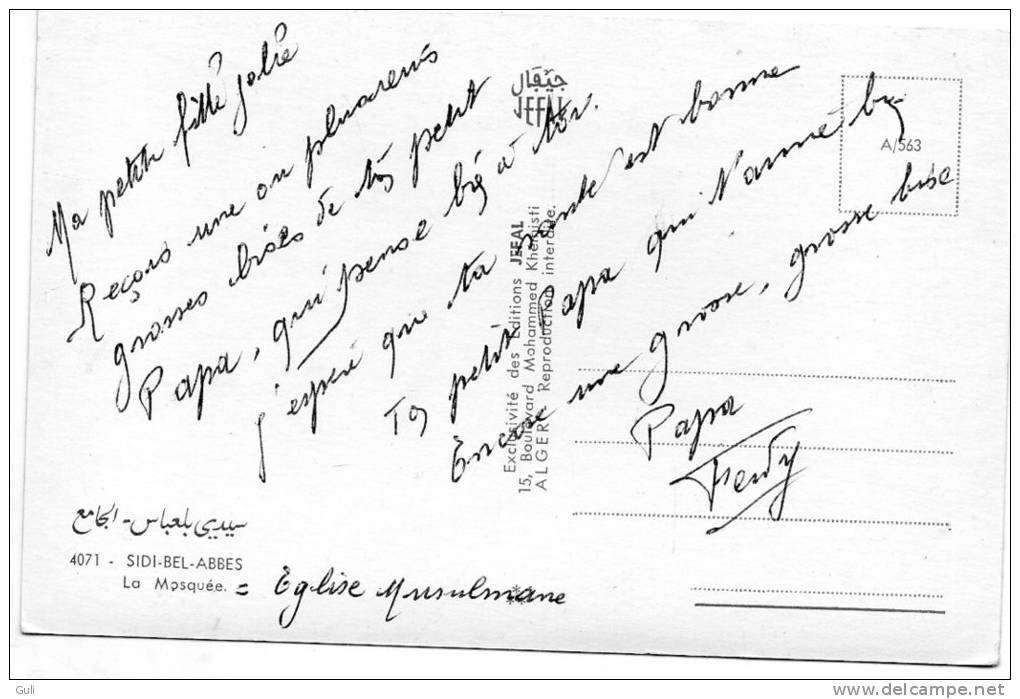 Ma petite fille jolie
Reçois une ou plusieurs
grosses bises de ton petit
Papa, qui pense bien a toi.
J'espère que ta santé est bonne
Ton petit Papa qui t'aime bien
Encore une grosse, grosse bise
Papa
جيفال
JEFAL
A/563
Exclusivité des Editions JEFAL
15, Boulevard Mohammed Khemisti
ALGER - Reproduction interdite.
سيدي بلعباس - الجامع
4071 - SIDI-BEL-ABBES
La Mosquée. = Église Musulmane
Guli
www.delcampe.net